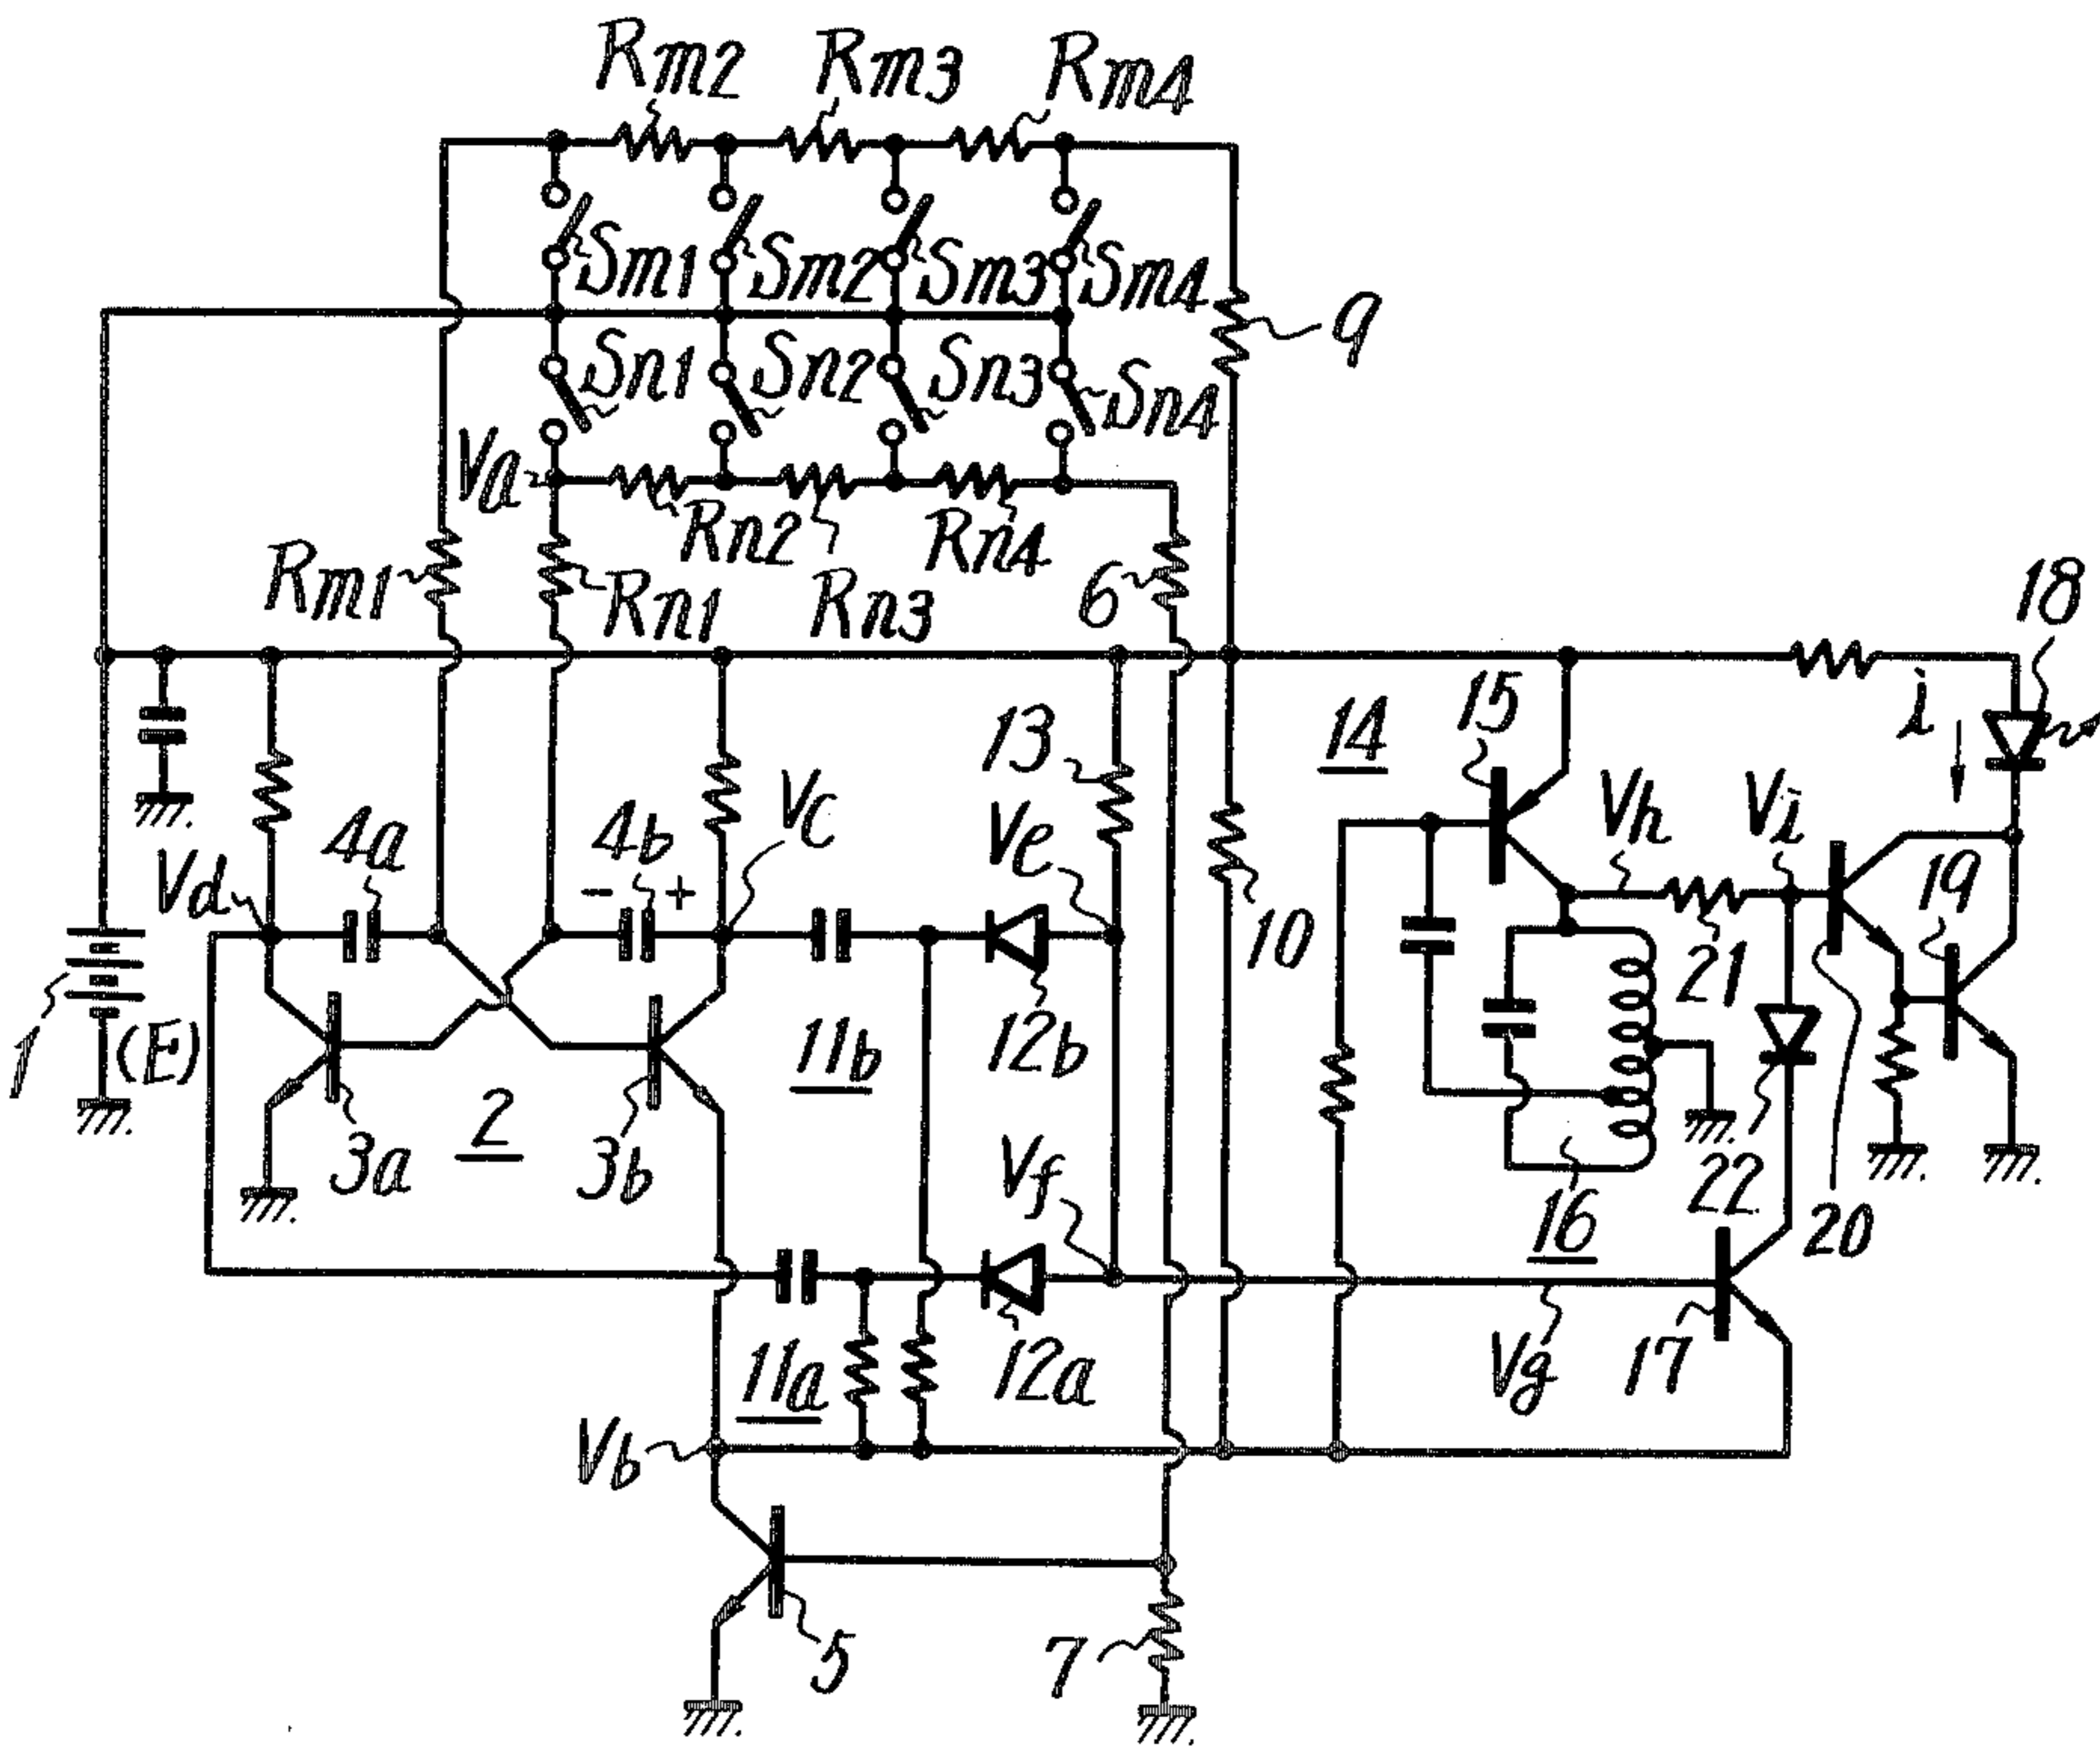 Rm2 Rm3 Rm4
Sm1 Sm2 Sm3 Sm4
9
Sn1 Sn2 Sn3 Sn4
Va
Rn2 Rn4
Rm1 Rn1 Rn3 6
18
13 14 15 i
4a 4b Vc Ve Vh Vi
- +
Vd 10 19
21
1 (E) 11b 12b
2
3a 3b Vf 16 22 20
11a 12a Vg 17
Vb
5 7